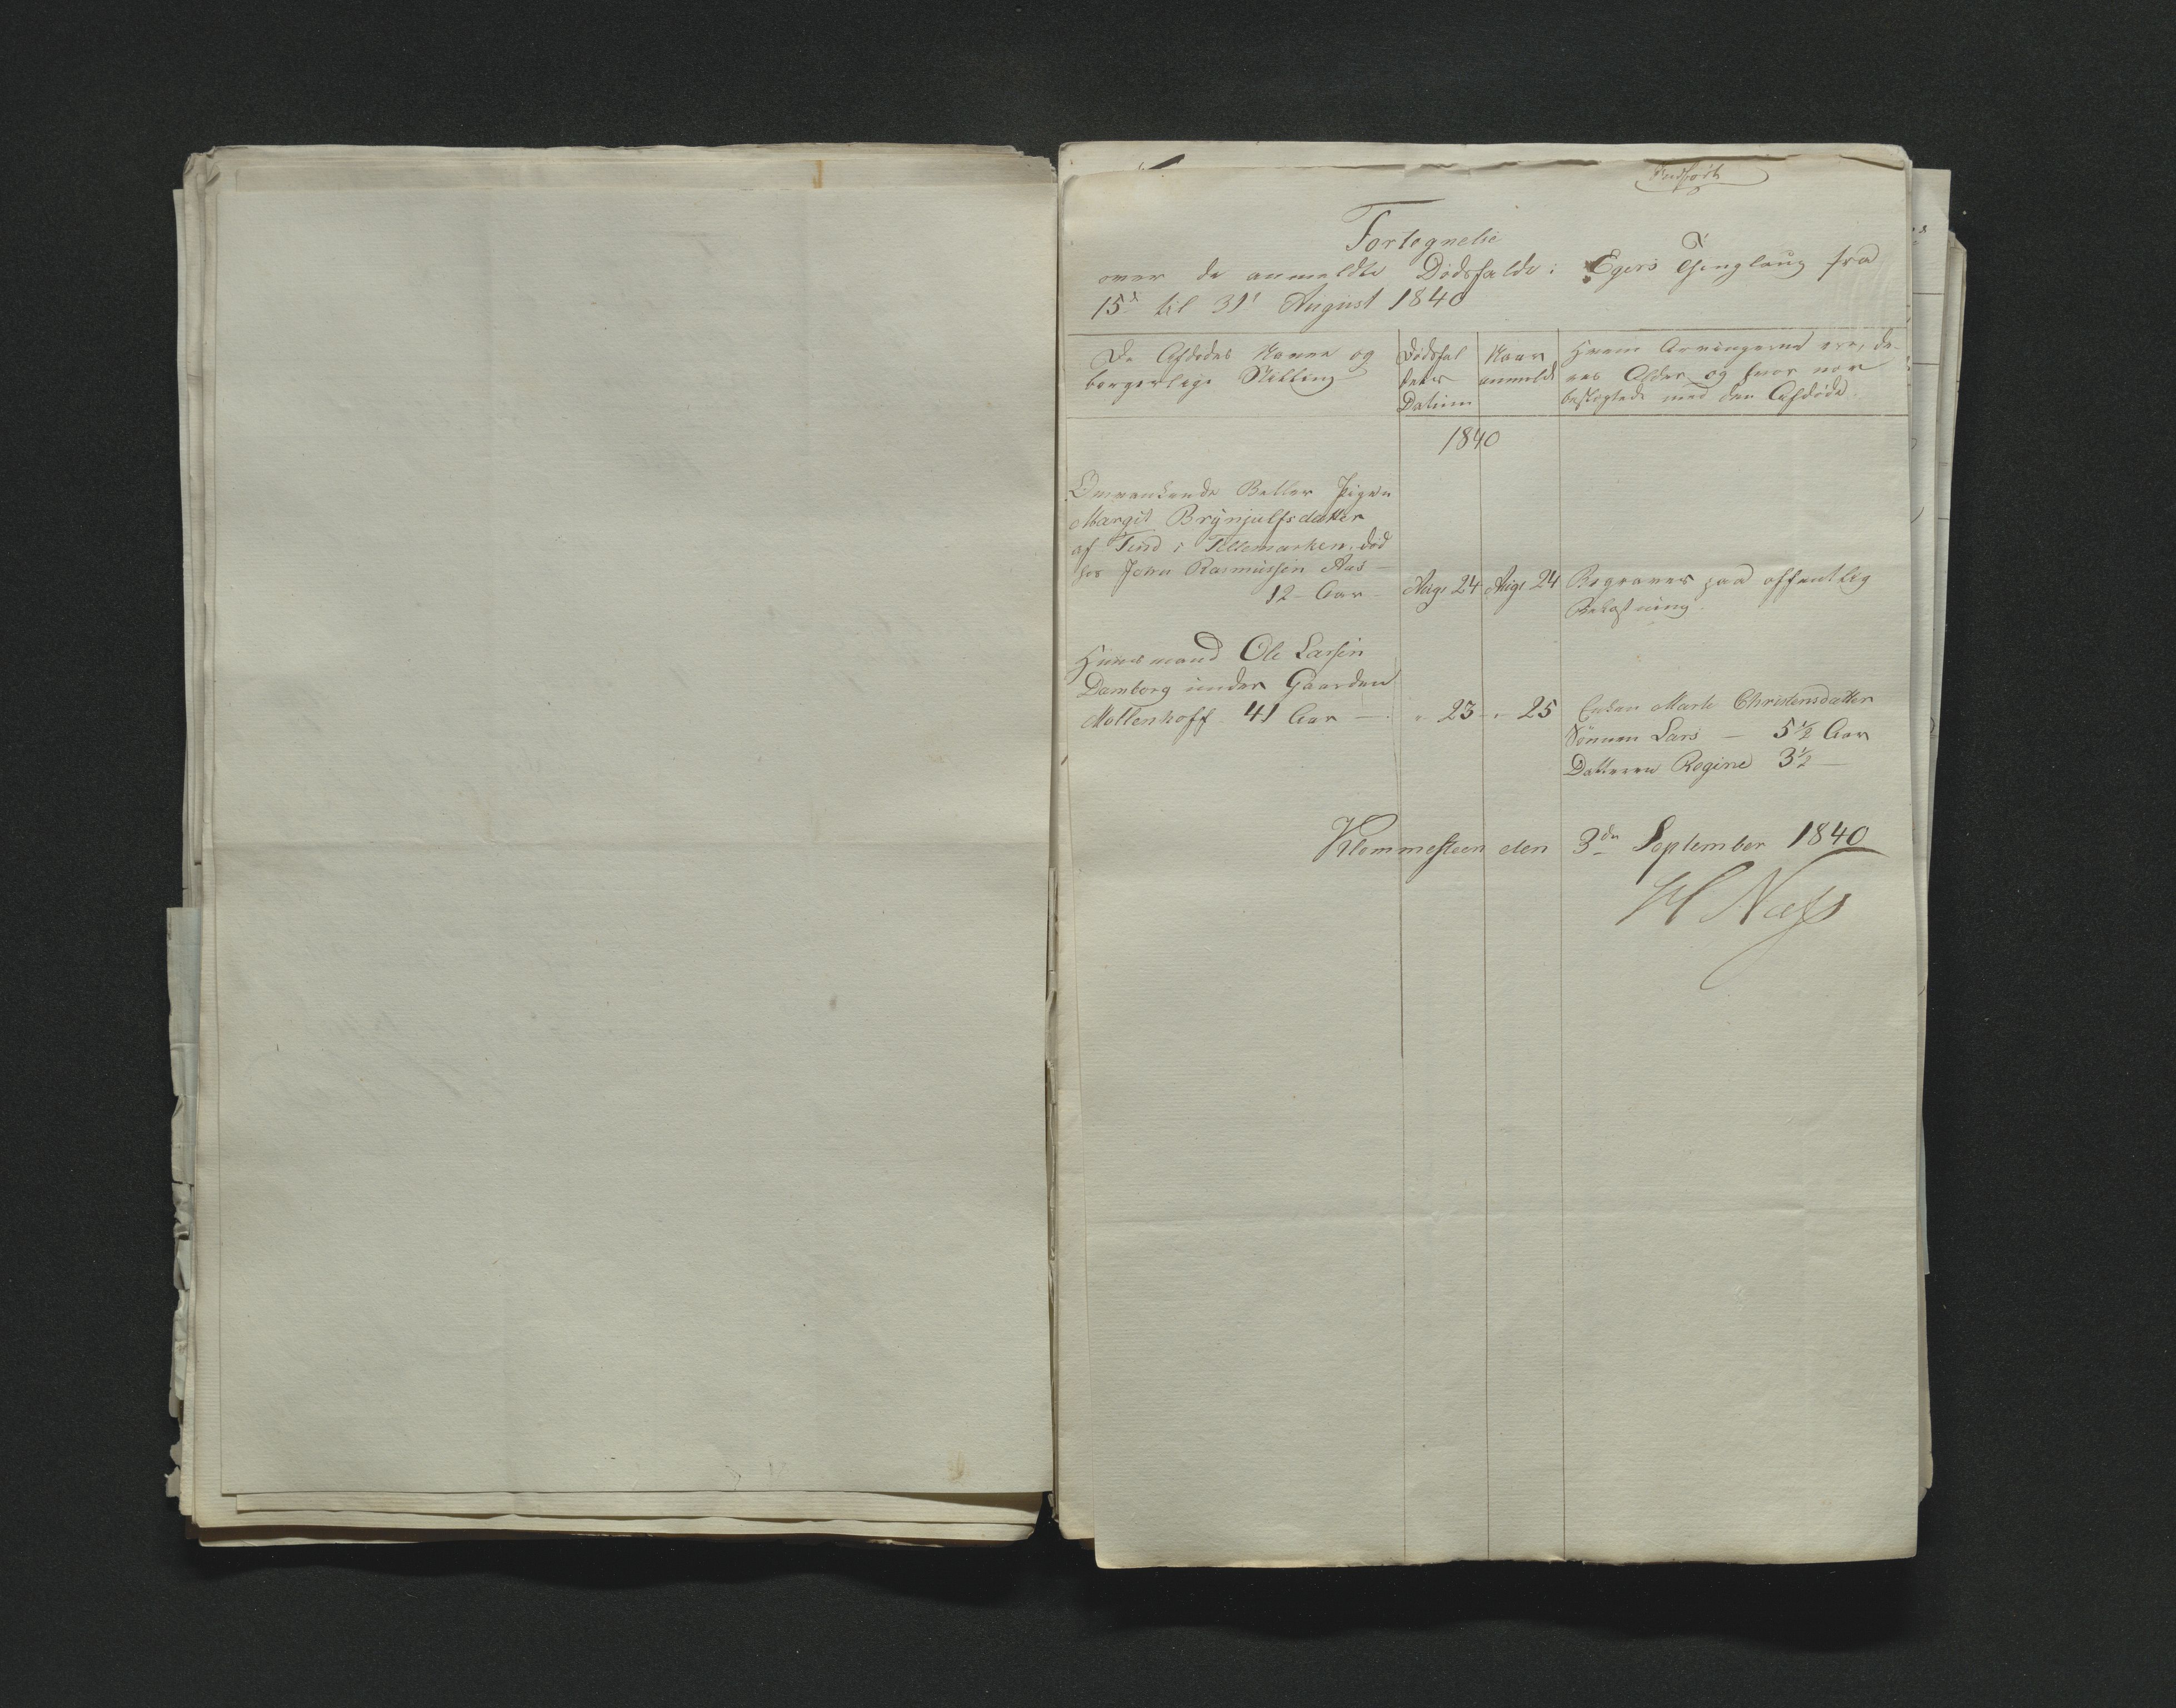 Indført
Fortegnelse
over de anmeldte Dødsfalde i Egers Thinglaug fra
15de til 31t August 1840
De Afdødes Navne og
borgerlige Stilling
Dødsfal
dets
Datum
Naar
anmeldt
Hvem Arvingerne ere, de-
res Alder og hvor nær
beslægtede med den Afdøde.
1840
Omvankende Betler Pigen
Margit Brynjulfsdatter
af Tind i Tellemarken, død
hos John Rasmussen Aas -
12 Aar - Augs 24 Augs 24 Begraves paa offentlig
Bekostning.
Huusmand Ole Larsen
Damborg under Gaarden
Møllenhoff 41 Aar - " 23 - " 25 Enken Marte Christensdatter
Sønnen Lars - 5 1/2 Aar
Datteren Regine 3 1/2 -
Klommesteen den 3de September 1840
H Næss